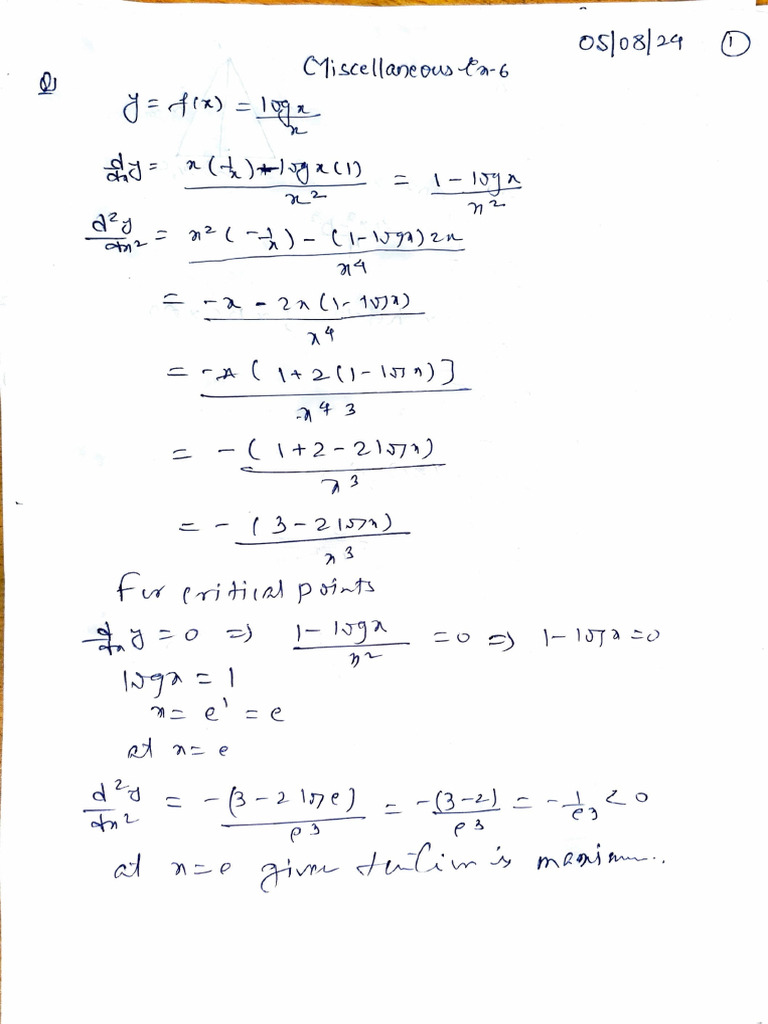 05/08/24 ①
Miscellaneous Ex-6
Q1
y = f(x) = log x / x
d/dx y = x(1/x) - log x (1) / x² = 1 - log x / x²
d²y/dx² = x²(-1/x) - (1 - log x) 2x / x⁴
= -x - 2x(1 - log x) / x⁴
= -x(1 + 2(1 - log x)] / x⁴ 3
= -(1 + 2 - 2 log x) / x³
= -(3 - 2 log x) / x³
For critical points
d/dx y = 0 ⇒ 1 - log x / x² = 0 ⇒ 1 - log x = 0
log x = 1
x = e¹ = e
at x = e
d²y/dx² = -(3 - 2 log e) / e³ = -(3-2) / e³ = -1/e³ < 0
at x = e given function is maximum..